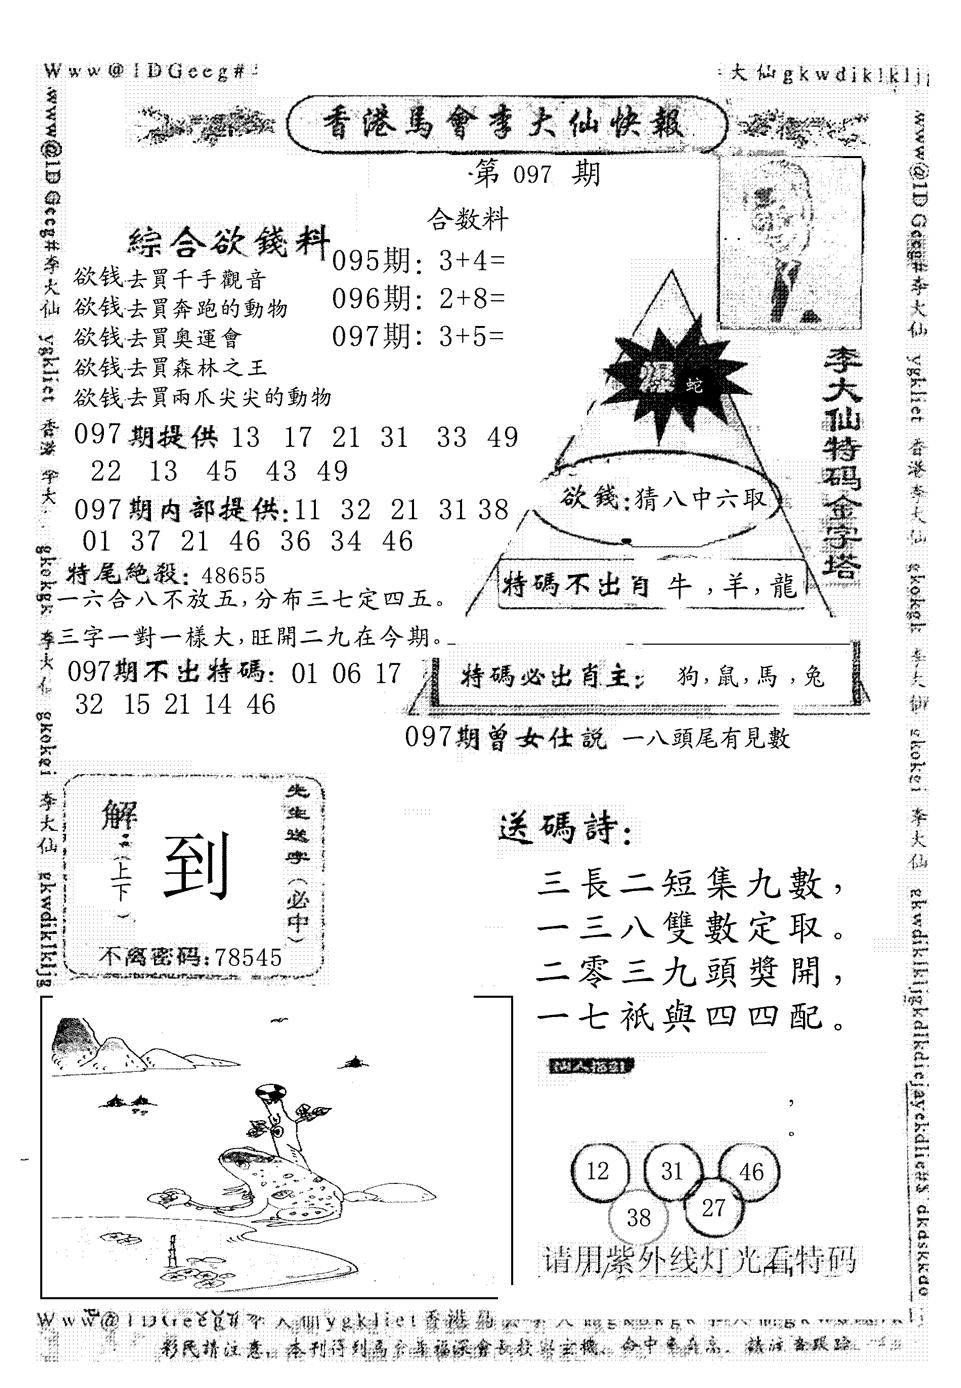 Www@1DGeeg#
大仙gkwdiklkljg
香港馬會李大仙快報
第 097 期
合数料
綜合欲錢料
095期: 3+4=
096期: 2+8=
097期: 3+5=
欲钱去買千手觀音
欲钱去買奔跑的動物
欲钱去買奥運會
欲钱去買森林之王
欲钱去買兩爪尖尖的動物
097期提供 13 17 21 31 33 49
22 13 45 43 49
097期内部提供:11 32 21 31 38
01 37 21 46 36 34 46
特尾絶殺: 48655
一六合八不放五,分布三七定四五。
三字一對一樣大,旺開二九在今期。
097期不出特碼: 01 06 17
32 15 21 14 46
爆 蛇
欲錢:猜八中六取
特碼不出肖 牛,羊,龍
特碼必出肖主: 狗,鼠,馬,兔
李大仙特码金字塔
097期曾女仕説 一八頭尾有見數
解:(上下)
到
先生送字(必中)
不离密码:78545
送碼詩:
三長二短集九數,
一三八雙數定取。
二零三九頭獎開,
一七衹與四四配。
仙人指引
,
。
12 31 46
38 27
请用紫外线灯光看特码
www@1DGeeg#李大仙 ygkliet 香港 李大 gkokgk 李大仙 gkokei 李大仙 gkwdiklkljg
www@1DGeeg#李大仙 ygkliet 香港李大仙 gkokgk 李大仙 gkokei 李大仙 gkwdiklkljgkdlkdiejayekdlie#$dkdskkdo